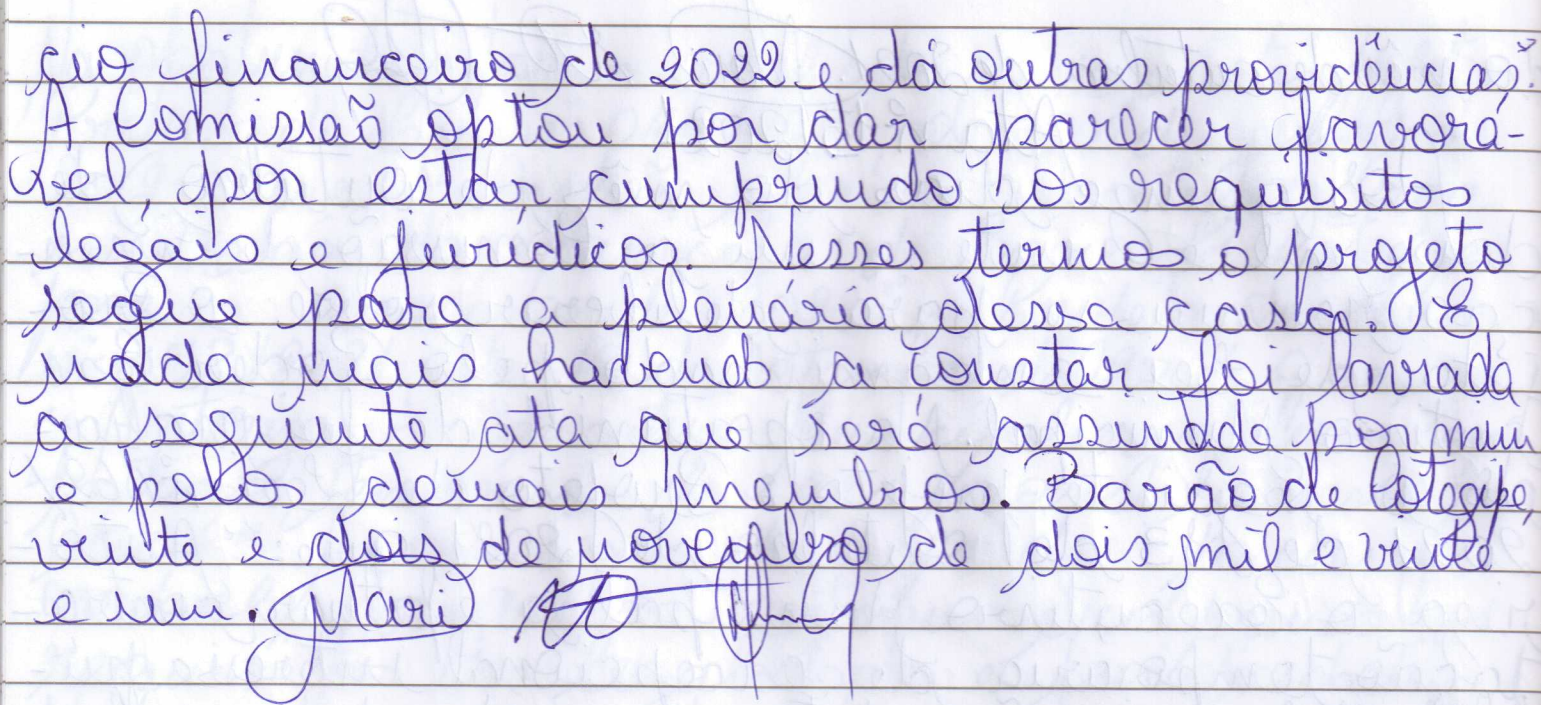 cio financeiro de 2022 e dá outras providências".
A Comissão optou por dar parecer favorá-
vel, por estar cumprindo os requisitos
legais e jurídicos. Nesses termos o projeto
segue para a plenária dessa casa. E
nada mais havendo a constar foi lavrada
a seguinte ata que será assinada por mim
e pelos demais membros. Barão de Cotegipe,
vinte e dois de novembro de dois mil e vinte
e um. Mari